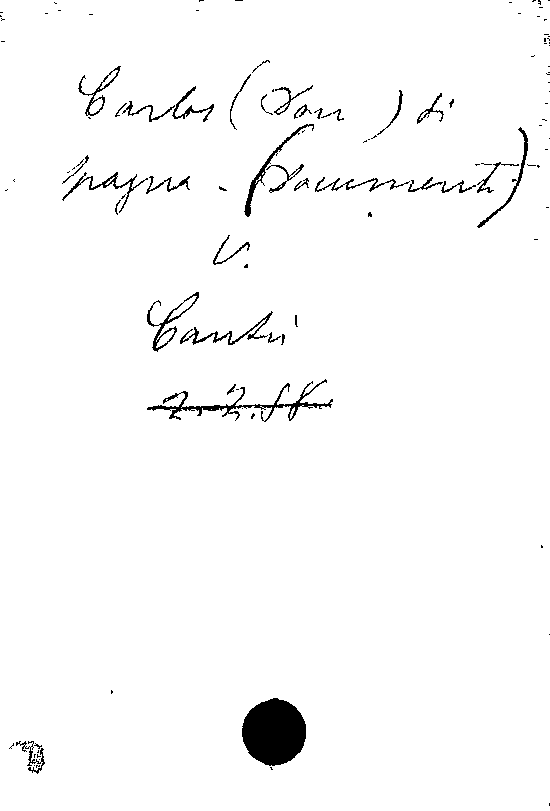 Carlos (Don) di
Spagna - (Documenti)
V.
Cantù